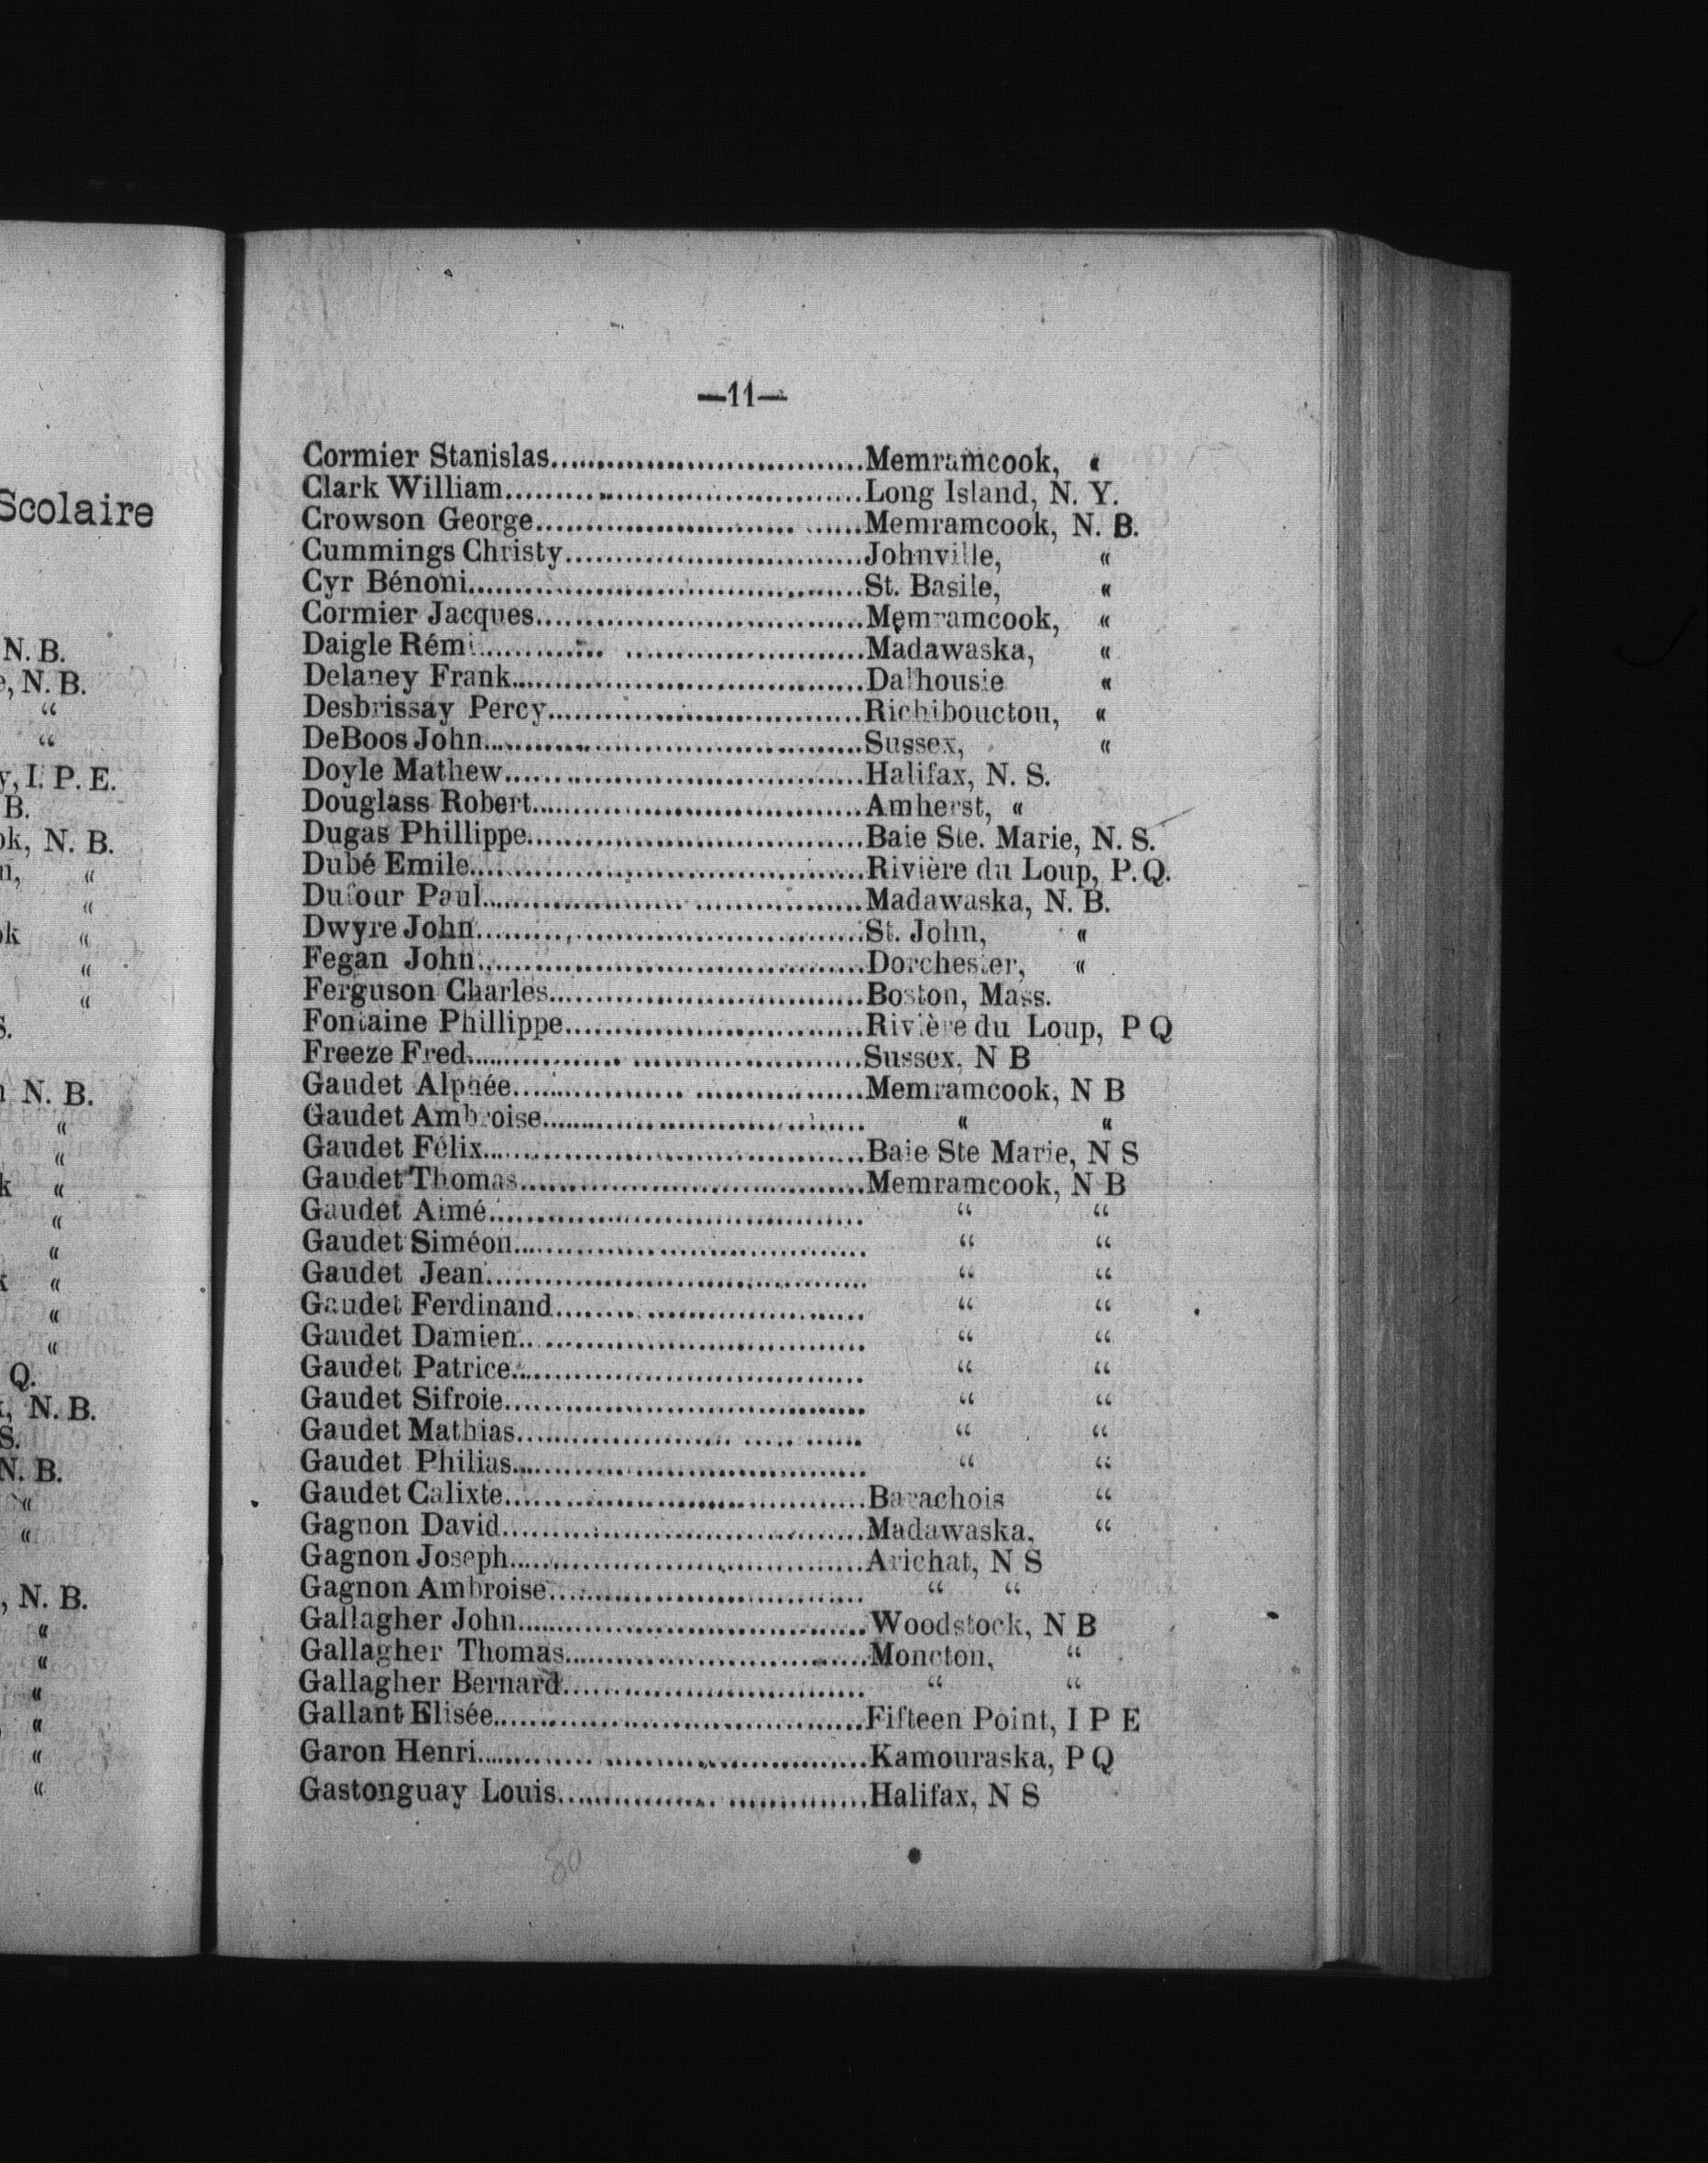 Scolaire
N. B.
N. B.
“
“
I. P. E.
B.
N. B.
“
“
“
“
“
N. B.
“
“
“
“
“
“
“
“
Q.
N. B.
S.
N. B.
“
“
N. B.
“
“
“
“
“
“
—11—
Cormier Stanislas..................................Memramcook, “
Clark William......................................Long Island, N. Y.
Crowson George............................ ......Memramcook, N. B.
Cummings Christy................................Johnville, “
Cyr Bénoni..........................................St. Basile, “
Cormier Jacques...................................Memramcook, “
Daigle Rémi............. ..........................Madawaska, “
Delaney Frank......................................Dalhousie “
Desbrissay Percy..................................Richibouctou, “
DeBoos John.........................................Sussex, “
Doyle Mathew.......................................Halifax, N. S.
Douglass Robert....................................Amherst, “
Dugas Phillippe.....................................Baie Ste. Marie, N. S.
Dubé Emile...........................................Rivière du Loup, P. Q.
Dufour Paul...................... ..................Madawaska, N. B.
Dwyre John..........................................St. John, “
Fegan John..........................................Dorchester, “
Ferguson Charles..................................Boston, Mass.
Fontaine Phillippe................................Rivière du Loup, P Q
Freeze Fred................. .........................Sussex, N B
Gaudet Alphée.................. ..................Memramcook, N B
Gaudet Ambroise................................... “ “
Gaudet Félix.........................................Baie Ste Marie, N S
Gaudet Thomas.....................................Memramcook, N B
Gaudet Aimé......................................... “ “
Gaudet Siméon...................................... “ “
Gaudet Jean......................................... “ “
Gaudet Ferdinand......... ........................ “ “
Gaudet Damien.. ................................... “ “
Gaudet Patrice...................................... “ “
Gaudet Sifroie....................................... “ “
Gaudet Mathias....................... ..... ...... “ “
Gaudet Philias...................................... “ “
Gaudet Calixte......................................Barachois “
Gagnon David.......................................Madawaska, “
Gagnon Joseph......................................Arichat, N S
Gagnon Ambroise.................................. “ “
Gallagher John.....................................Woodstock, N B
Gallagher Thomas.................................Moncton, “
Gallagher Bernard................................ “ “
Gallant Elisée.......................................Fifteen Point, I P E
Garon Henri............ ............................Kamouraska, P Q
Gastonguay Louis................. ...............Halifax, N S
80